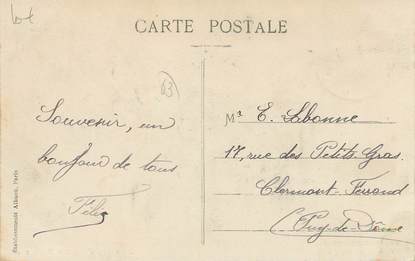 CARTE POSTALE
63
Souvenir, un
bonjour de tous
Mr E. Labonne
17, rue des Petits Gras
Clermont-Ferrand
(Puy-de-Dôme
Établissements Alibert, Paris